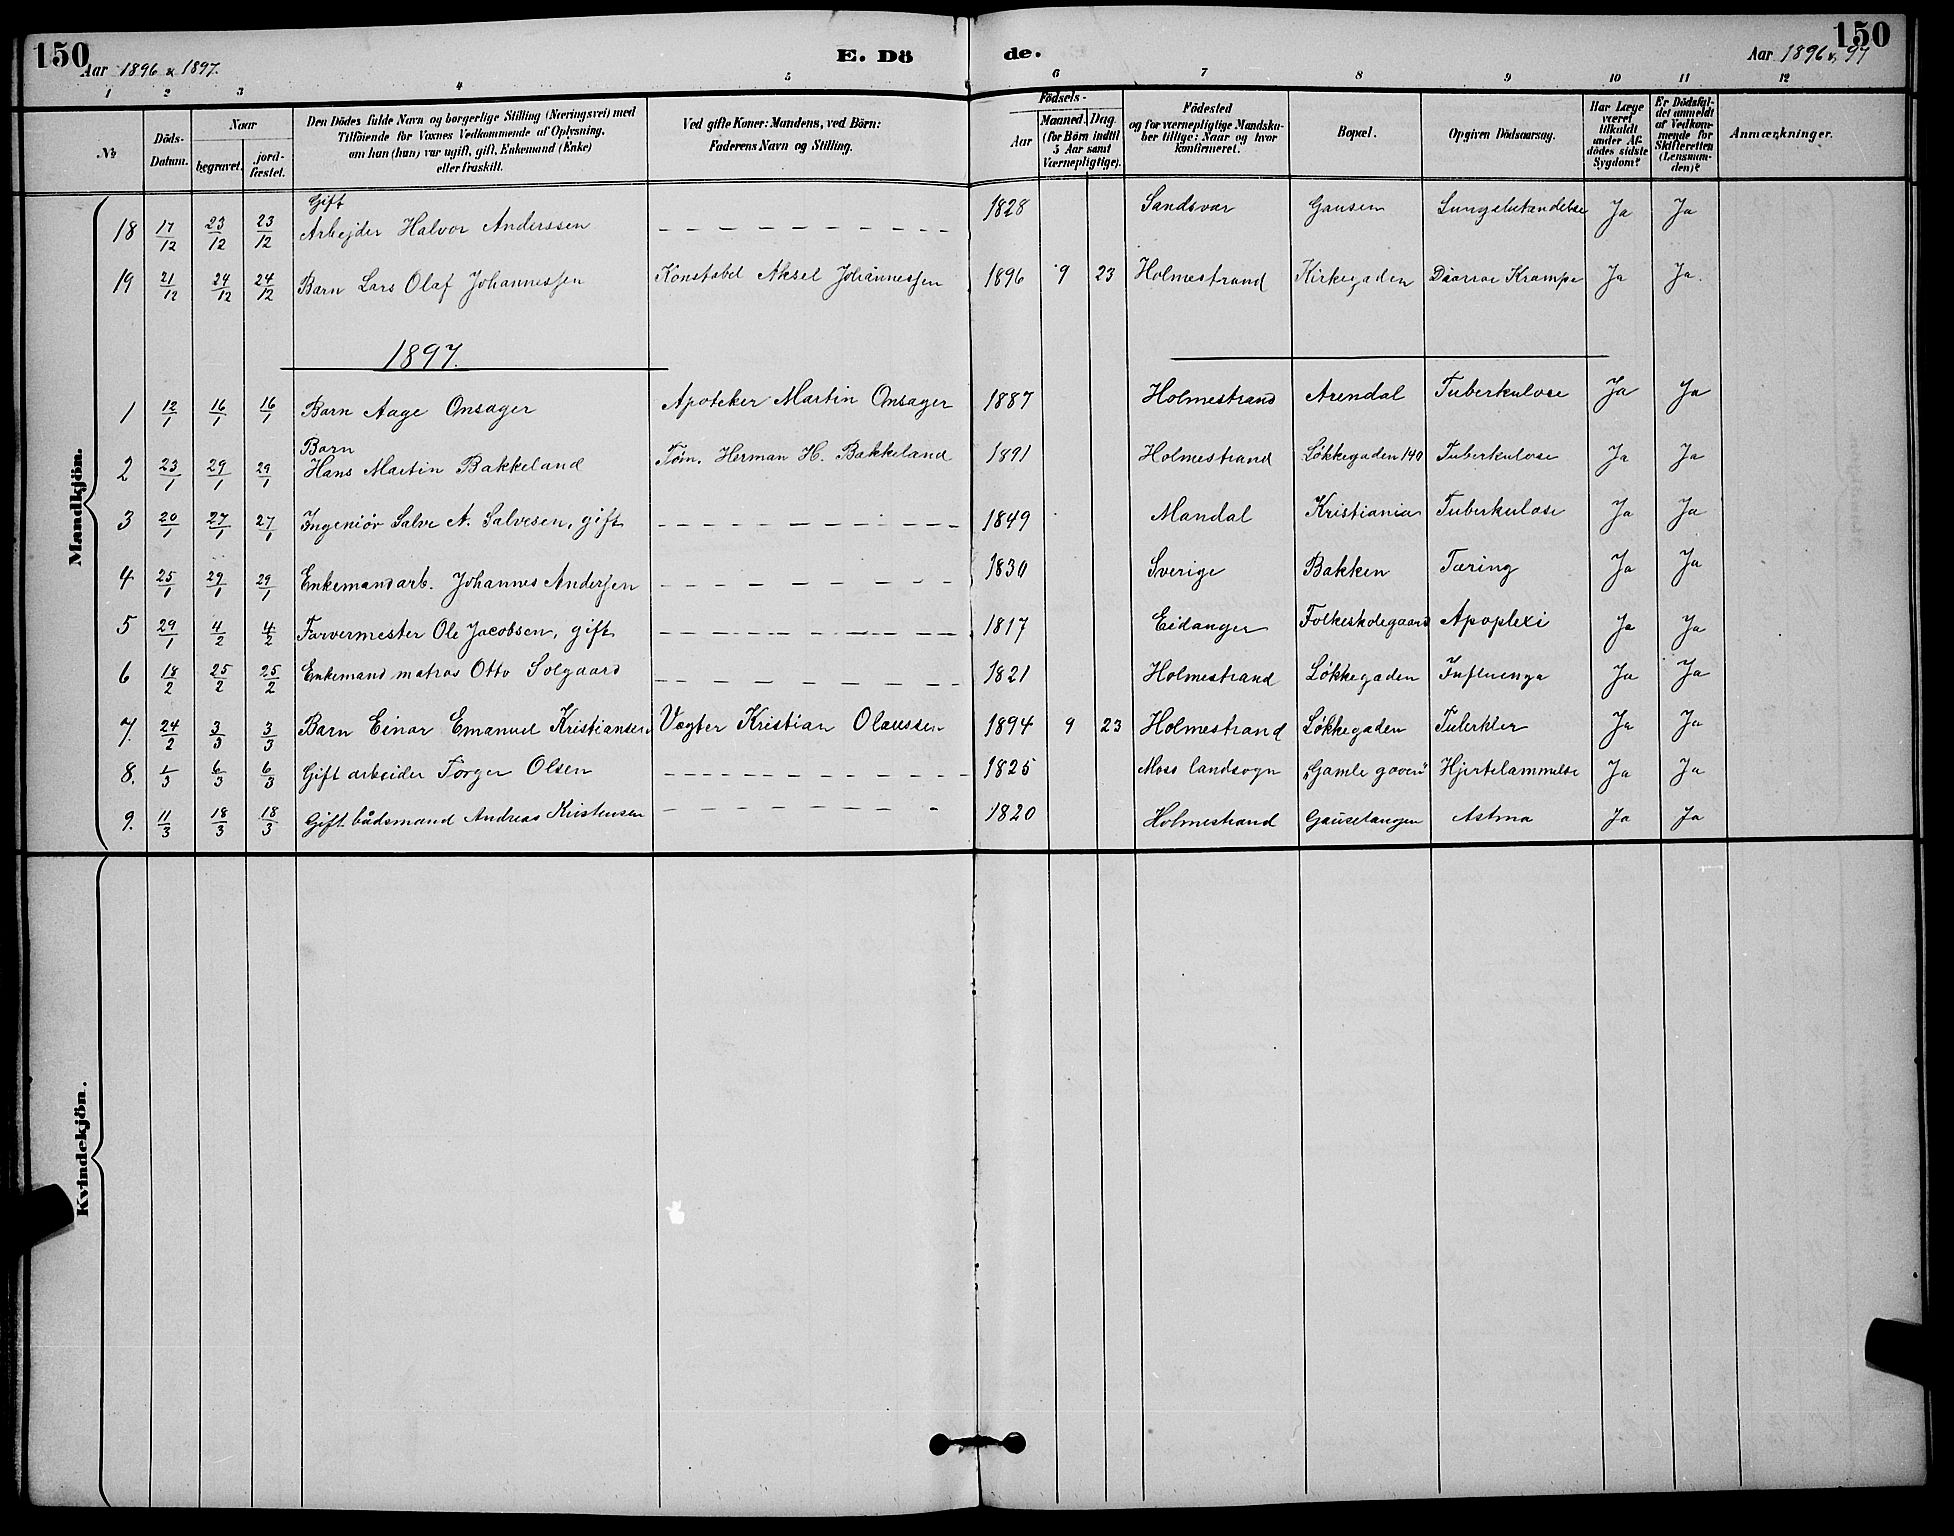 150
Aar 1896 & 1897.
E. Dö
de.
Aar 1896 & 97
150
1 2 3 4 5 6 7 8 9 10 11 12
№
Döds-Datum.
Naar
begravet.
jord-fæstet.
Den Dödes fulde Navn og borgerlige Stilling (Næringsvei) med
Tilföiende for Voxnes Vedkommende af Oplysning,
om hun (han) var ugift, gift, Enkemand (Enke)
eller fraskilt.
Ved gifte Koner: Mandens, ved Börn:
Faderens Navn og Stilling.
Födsels-
Aar
Maaned. Dag.
(for Börn indtil
5 Aar samt
Værnepligtige).
Födested
og for værnepligtige Mandska-
ber tillige: Naar og hvor
konfirmeret.
Bopæl.
Opgiven Dödsaarsag.
Har Læge
været
tilkaldt
under Af-
dödes sidste
Sygdom?
Er Dödsfal-
det anmeldt
af Vedkom-
mende for
Skifteretten
(Lensman-
den)?
Anmærkninger.
Mandkjön.
18 17/12 23/12 23/12 Gift Arbejder Halvor Anderssen – – – 1828 Sandsvær Gausen Lungebetændelse Ja Ja
19 21/12 24/12 24/12 Barn Lars Olaf Johannessen Konstabel Aksel Johannessen 1896 9 23 Holmestrand Kirkegaden Diarroe Krampe Ja Ja.
1897.
1 12/1 16/1 16/1 Barn Aage Onsager Apoteker Martin Onsager 1887 Holmestrand Arendal Tuberkulose Ja Ja
2 23/1 29/1 29/1 Barn Hans Martin Bakkeland Tøm. Herman H. Bakkeland 1891 Holmestrand Løkkegaden 140 Tuberkulose Ja Ja
3 20/1 27/1 27/1 Ingeniör Salve A. Salvesen, gift – – – 1849 Mandal Kristiania Tuberkulose Ja Ja
4 25/1 29/1 29/1 Enkemand arb. Johannes Andersen – – – 1830 Sverige Bakken Tæring Ja Ja
5 29/1 4/2 4/2 Farvermester Ole Jacobsen, gift – – – 1817 Eidanger Folkeskolegaard Apoplexi Ja Ja
6 18/2 25/2 25/2 Enkemand matros Otto Solgaard – – – 1821 Holmestrand Løkkegaden Influenza Ja Ja
7. 24/2 3/3 3/3 Barn Einar Emanuel Kristiansen Vægter Kristian Olaussen 1894 9 23 Holmestrand Løkkegaden Tuberkler Ja Ja
8. 1/3 6/3 6/3 Gift arbeider Torger Olsen – – – 1825 Moss landsogn "Gamle goven" Hjertelammelse Ja Ja
9. 11/3 18/3 18/3 Gift bådsmand Andreas Kristensen – – – 1820 Holmestrand Gausetangen Astma Ja Ja
Kvindekjön.